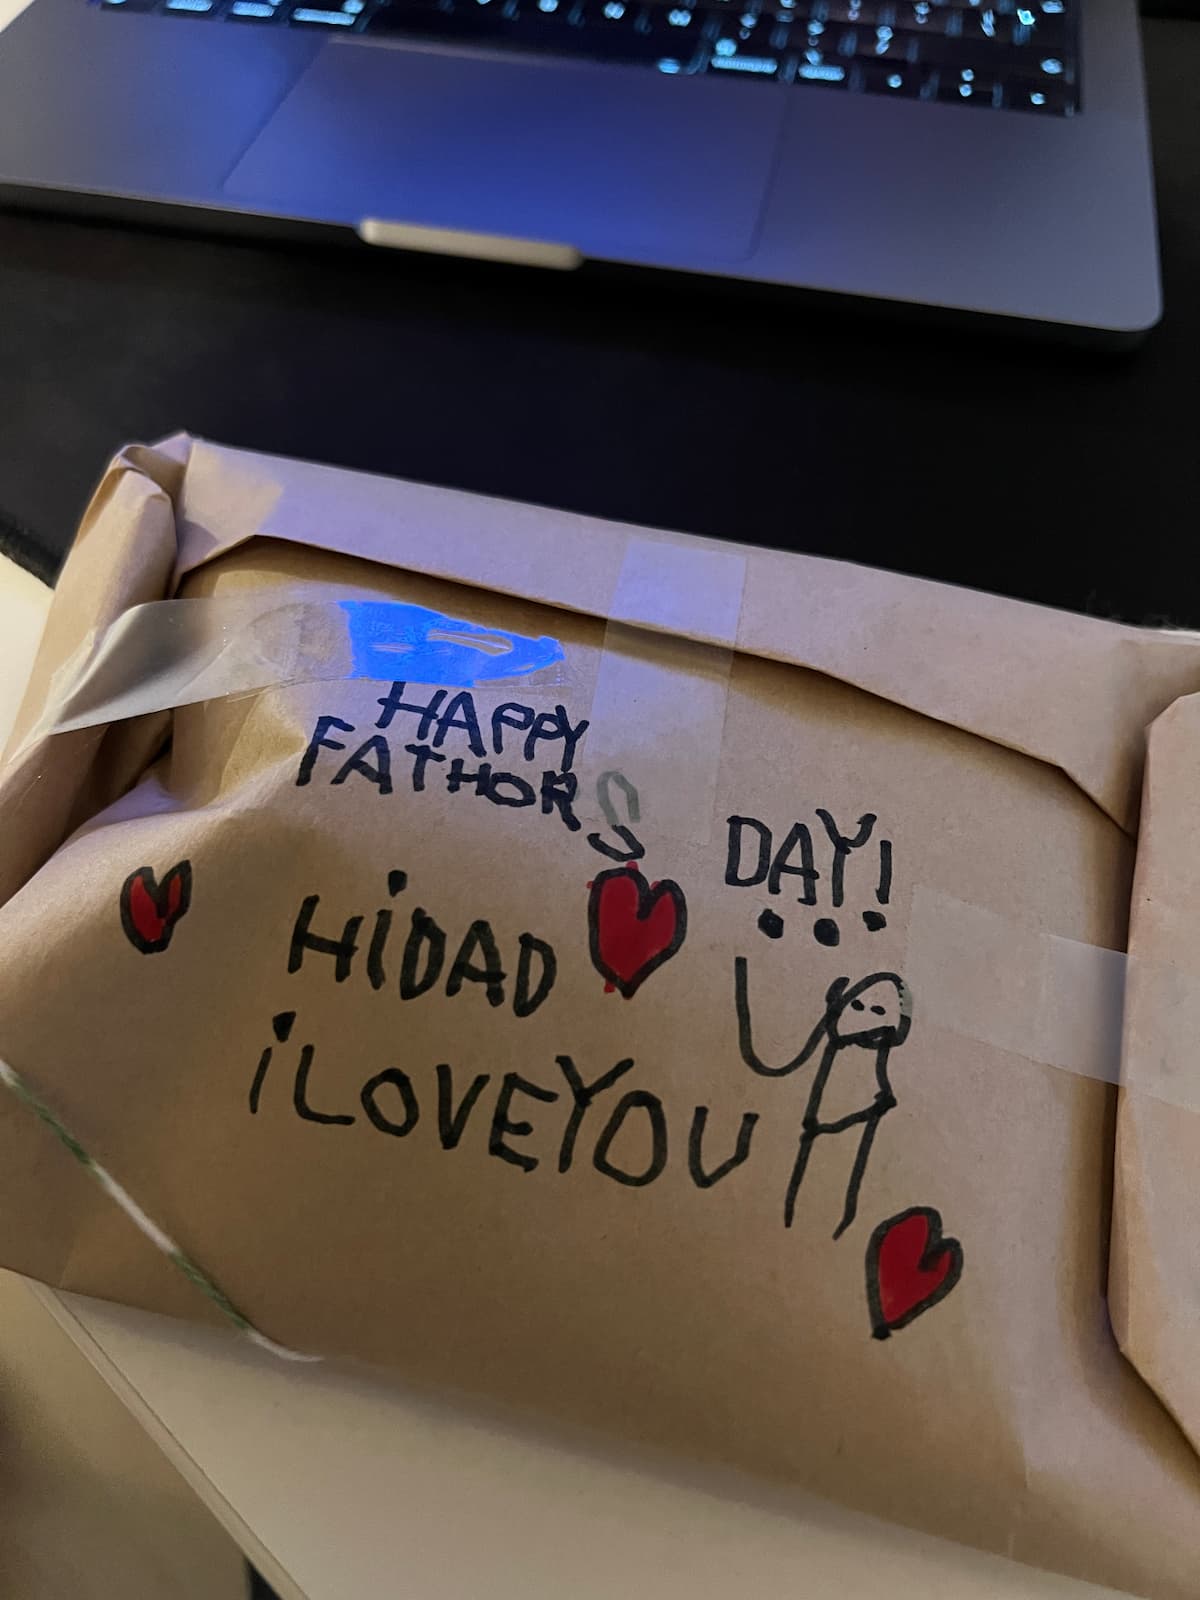 HAPPY
FATHORS DAY!
HiDAD
iLOVEYOU